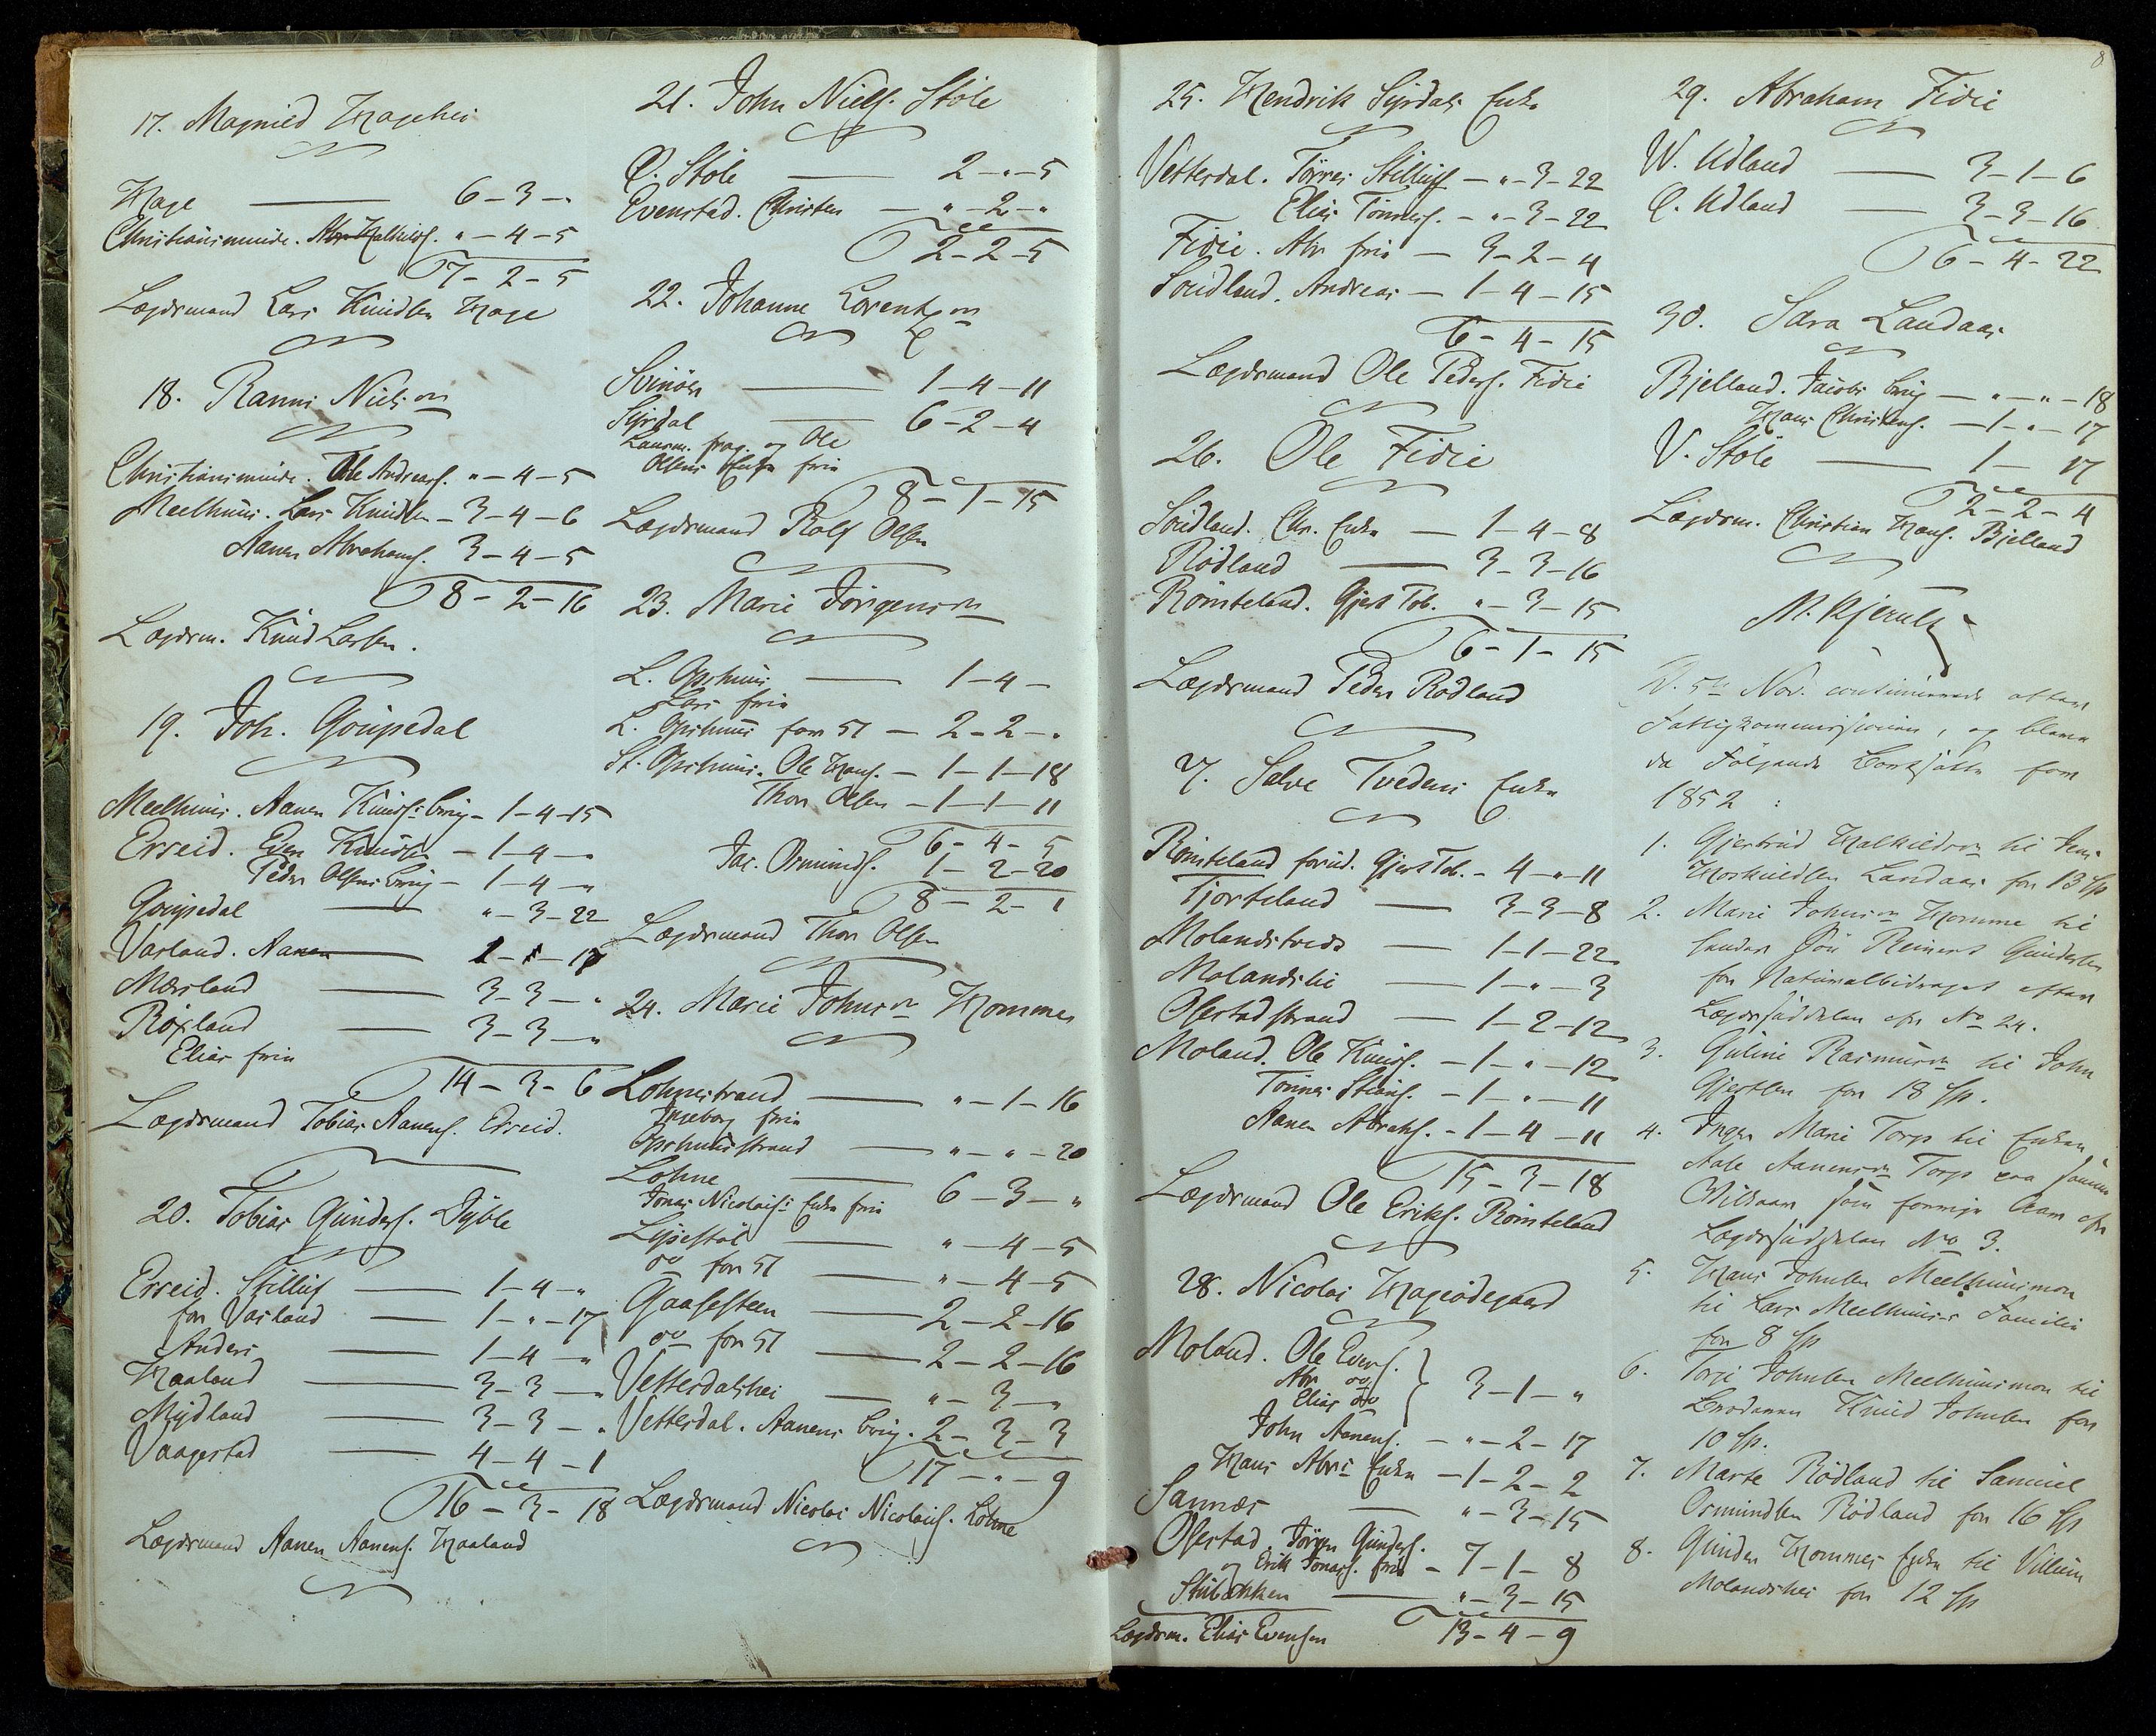 17. Magnild Hagehei
Hage — 6-3-"
Christiansminde. Abr. Halkilds. "-4-5
7-2-5
Lægdsmand Lars Knudsen Hage
18. Ranni Niels ͫ
Christiansminde. Ole Andreas. "-4-5
Meelhuus. Lars Knudsen - 3-4-6
Aanen Abrahams. 3-4-5
8-2-16
Lægdsm. Knud Larsen.
19. Joh. Goupedal
Meelhuus. Aanen Knuds: brug - 1-4-15
Erseid. Even Knudsen - 1-4-"
Peder Olsens brug - 1-4-"
Goupedal — "-3-22
Varland. Aanen — 1-1-17
Mærland — 3-3-"
Röxland — 3-3-"
Elias frie
14-3-6
Lægdsmand Tobias Aanens. Erseid.
20. Tobias Gunders. Dyble
Erseid. Stilluf — 1-4-"
for Varland — 1-"-17
Anders — 1-4-"
Haaland — 3-3-"
Mydland — 3-3-"
Vaagestad — 4-4-1
16-3-18
Lægdsmand Aanen Aanens. Haaland
21. John Niels. Stöle
Ö. Stöle — 2-"-5
Evenstad. Christen — "-2-"
2-2-5
22. Johanne Lorentz ͫ
Svinöen — 1-4-11
Syrdal — 6-2-4
Ole
Olsens Enke frie
8-1-15
Lægdsmand Rolf Olsen
23. Marie Jörgens ͫ
L. Opshuus — 1-4-
Lars frie
L. Opshuus for 51 — 2-2-"
St. Opshuus. Ole Hans. — 1-1-18
Thor Olsen — 1-1-11
6-4-5
Jac. Osmunds. 1-2-20
8-2-1
Lægdsmand Thor Olsen
24. Marie Johns ͫ Homme
Lohnestrand — "-1-16
Ingeborg frie
Opshuusstrand — "-"-20
Lohne — 6-3-"
Jonas Nicolais: Enke frie
Lysestöl — "-4-5
do for 51 — "-4-5
Gaasesteen — 2-2-16
do for 51 — 2-2-16
Vetterdalshei — "-3-"
Vetterdal. Aanens brug. 2-3-3
17-"-9
Lægdsmand Nicolai Nicolais. Lohne
8
25. Hendrik Syrdals Enke
Vetterdal. Törres Stilluf — "-3-22
Elias Tönnes. - "-3-22
Fidie. Abr frie — 3-2-4
Soudland. Andreas — 1-4-15
6-4-15
Lægdsmand Ole Peders. Fidie
26. Ole Fidie
Soudland. Chr. Enke — 1-4-8
Rödland — 3-3-16
Römteland. Gjert Tob. "-3-15
6-1-15
Lægdsmand Peder Rödland
27. Salve Tvedens Enke
Römteland forud. Gjert Tob. - 4-"-11
Tjorteland — 3-3-8
Molandstvedt — 1-1-22
Molandslie — 1-"-3
Ofestadstrand — 1-2-12
Moland. Ole Knuds. - 1-"-12
Tönnes Stians. - 1-"-11
Aanen Abrahs. - 1-4-11
15-3-18
Lægdsmand Ole Eriks. Römteland
28. Nicolai Hageödegaard
Moland. Ole Evens.
Abr do
Elias do
3-1-"
John Aanens. - "-2-17
Hans Abrs Enke - 1-2-2
Sannæs — "-3-15
Ofestad. Jörgen Gunders.
og Erik Jonas. frie - 7-1-8
Stubækken — "-3-15
13-4-9
Lægdsm. Elias Evensen
29. Abraham Fidie
W. Udland — 3-1-6
Ö. Udland — 3-3-16
6-4-22
30. Sara Landaas
Bjelland. Jacobs brug — "-"-18
Hans Christens. — 1-"-17
V. Stöle — 1- 17
2-2-4
Lægdsm. Christian Hans. Bjelland
N. Kjerulf
D. 5te Nov. continuerede atter
Fattigkommissionen, og bleve
da Fölgende bortsatte for
1852:
1. Gjertrud Halkilds ͫ til Jens
Landaas for 13 Sp
2. Marie Johns ͫ Homme til
Reinert Gundersen
for Naturalbidraget efter
Lægdssedlen No 24.
3. Guline Rasmus ͫ til John
Gjertsen for 18 Sp.
4. Inger Marie Torp til Enken
Aale Aanens ͫ Torp paa samme
Vilkaar som forrige Aar efter
Lægdssedelen No 3.
5. Hans Johnsen Meelhuusmon
til Lars Meelhuus's Familie
for 8 Sp
6. Terje Johnsen Meelhuusmon til
Broderen Knud Johnsen for
10 Sp.
7. Marte Rödland til Samuel
Osmundsen Rödland for 16 Sp
8. Gunder Hommes Enke til Villum
Molandshei for 12 Sp